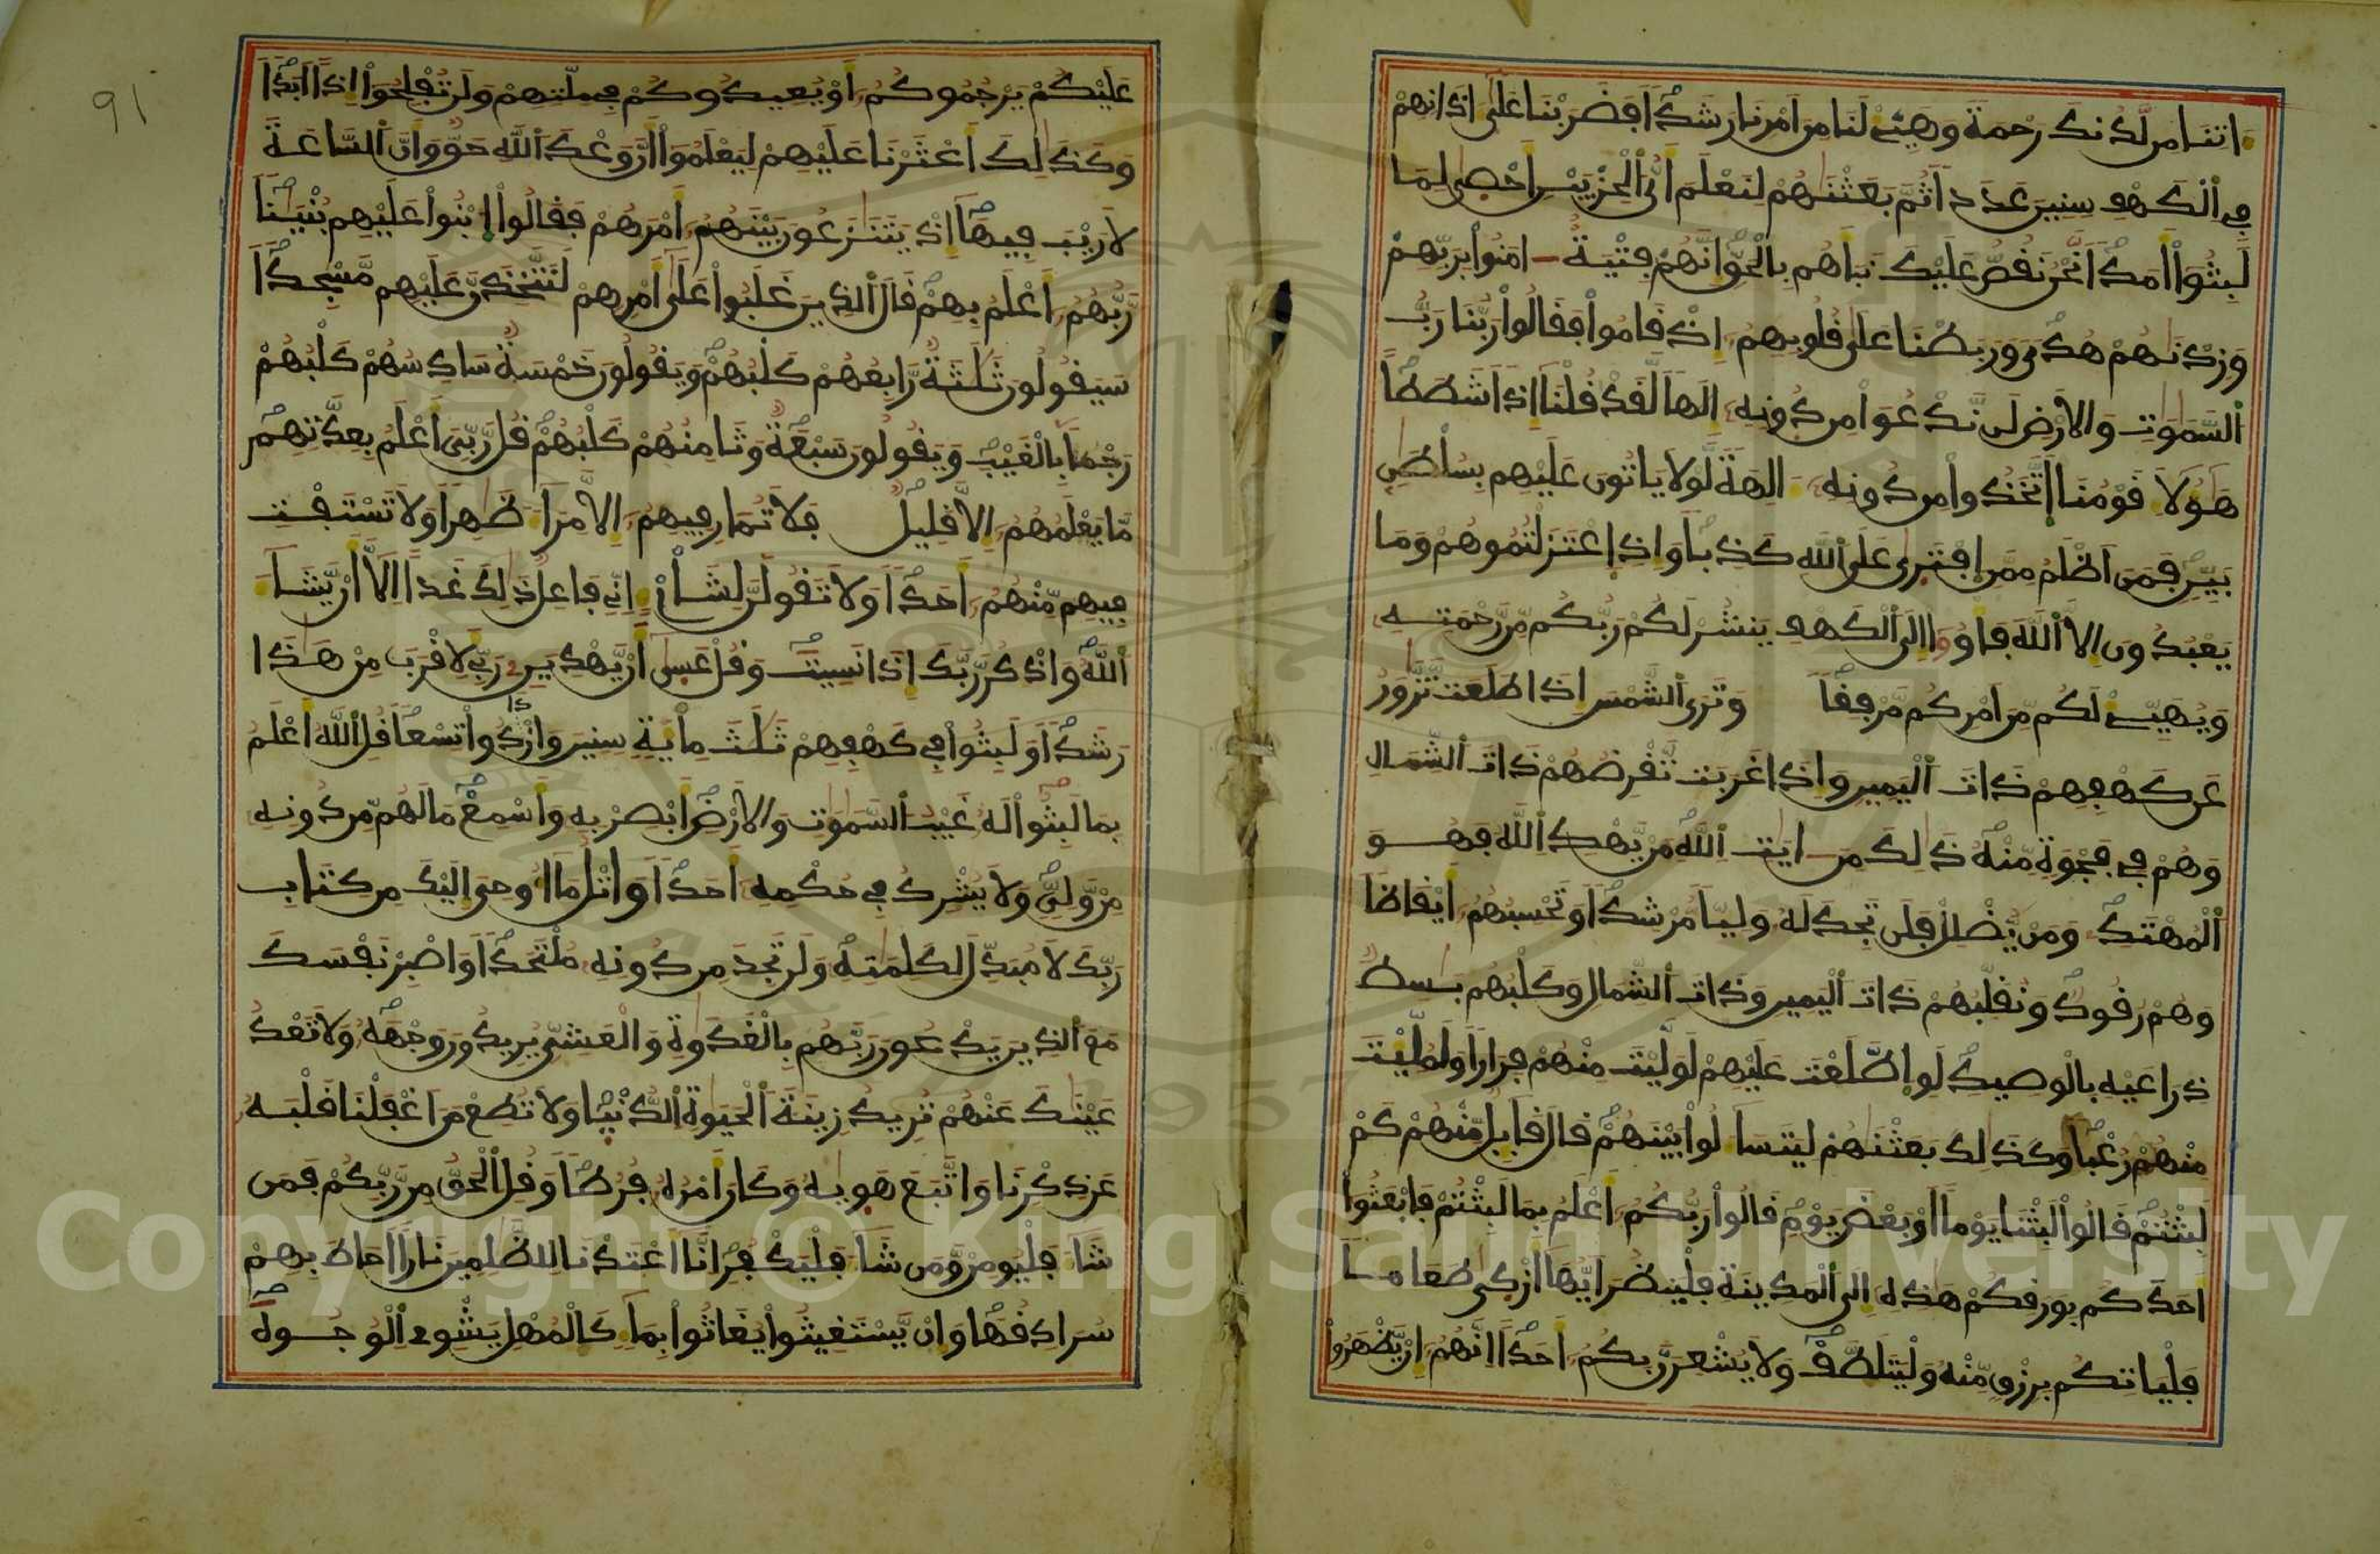 ءاتنا من لدنك رحمة وهيئ لنا من امرنا رشدا فضربنا على ءاذانهم
في الكهف سنين عددا ثم بعثنهم لنعلم اي الحزبين احصى لما
لبثوا امدا نحن نقص عليك نباهم بالحق انهم فتية ءامنوا بربهم
وزدنهم هدى وربطنا على قلوبهم إذ قاموا فقالوا ربنا رب
السموت والارض لن ندعوا من دونه إلها لقد قلنا إذا شططا
هؤلاء قومنا اتخذوا من دونه ءالهة لولا ياتون عليهم بسلطن
بين فمن اظلم ممن افترى على الله كذبا وإذ اعتزلتموهم وما
يعبدون إلا الله فاووا إلى الكهف ينشر لكم ربكم من رحمته
ويهيئ لكم من امركم مرفقا وترى الشمس إذا طلعت تزور
عن كهفهم ذات اليمين وإذا غربت تقرضهم ذات الشمال
وهم في فجوة منه ذلك من ءايت الله من يهد الله فهو
المهتد ومن يضلل فلن تجد له وليا مرشدا وتحسبهم ايقاظا
وهم رقود ونقلبهم ذات اليمين وذات الشمال وكلبهم بسط
ذراعيه بالوصيد لو اطلعت عليهم لوليت منهم فرارا ولمليت
منهم رعبا وكذلك بعثنهم ليتساءلوا بينهم قال قايل منهم كم
لبثتم قالوا لبثنا يوما او بعض يوم قالوا ربكم اعلم بما لبثتم فابعثوا
احدكم بورقكم هذه إلى المدينة فلينظر ايها ازكى طعاما
فلياتكم برزق منه وليتلطف ولا يشعرن بكم احدا إنهم إن يظهروا
عليكم يرجموكم او يعيدوكم في ملتهم ولن تفلحوا إذا ابدا
وكذلك اعثرنا عليهم ليعلموا ان وعد الله حق وان الساعة
لا ريب فيها إذ يتنزعون بينهم امرهم فقالوا ابنوا عليهم بنيانا
ربهم اعلم بهم قال الذين غلبوا على امرهم لنتخذن عليهم مسجدا
سيقولون ثلثة رابعهم كلبهم ويقولون خمسة سادسهم كلبهم
رجما بالغيب ويقولون سبعة وثامنهم كلبهم قل ربي اعلم بعدتهم
ما يعلمهم إلا قليل فلا تمار فيهم إلا مراء ظهرا ولا تستفت
فيهم منهم احدا ولا تقولن لشاىء إني فاعل ذلك غدا إلا ان يشاء
الله واذكر ربك إذا نسيت وقل عسى ان يهدين ربي لاقرب من هذا
رشدا ولبثوا في كهفهم ثلث ماية سنين وازدادوا تسعا قل الله اعلم
بما لبثوا له غيب السموت والارض ابصر به واسمع ما لهم من دونه
من ولي ولا يشرك في حكمه احدا واتل ما اوحي إليك من كتاب
ربك لا مبدل لكلمته ولن تجد من دونه ملتحدا واصبر نفسك
مع الذين يدعون ربهم بالغدوة والعشي يريدون وجهه ولا تعد
عينك عنهم تريد زينة الحيوة الدنيا ولا تطع من اغفلنا قلبه
عن ذكرنا واتبع هويه وكان امره فرطا وقل الحق من ربكم فمن
شاء فليومن ومن شاء فليكفر إنا اعتدنا للظلمين نارا احاط بهم
سرادقها وإن يستغيثوا يغاثوا بماء كالمهل يشوي الوجوه
91
Copyright © King Saud University
1957